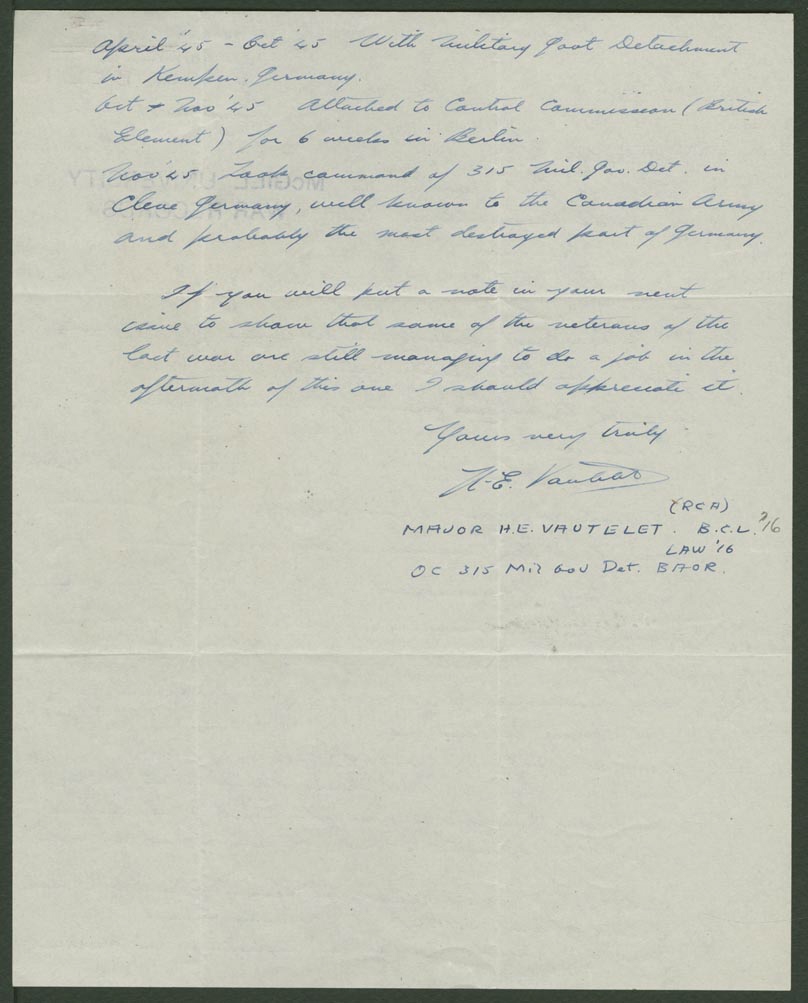 April '45 - Oct '45 With Military Govt Detachment
in Kempen, Germany.
Oct & Nov '45 Attached to Control Commission (British
Element) for 6 weeks in Berlin.
Nov '45 Took command of 315 Mil. Gov. Det. in
Cleve Germany, well known to the Canadian Army
and probably the most destroyed part of Germany.
If you will put a note in your next
issue to show that some of the veterans of the
last war are still managing to do a job in the
aftermath of this one I should appreciate it.
Yours very truly
H.E. Vautelet
(RCA)
MAJOR H.E. VAUTELET. B.C.L. '16
LAW '16
OC 315 Mil Gov Det. BAOR.
McGILL UNIVERSITY
WAR RECORDS